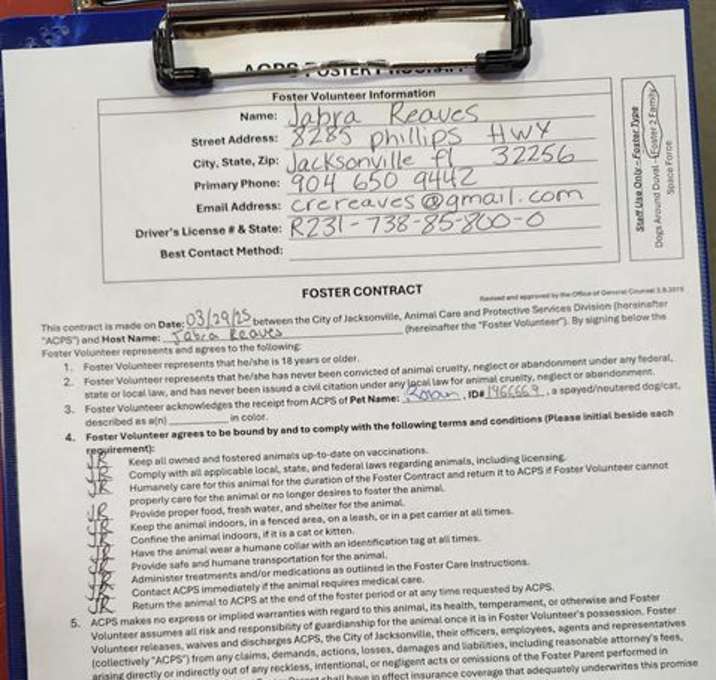 ACPS FOSTER PROGRAM
Foster Volunteer Information
Name: Jabra Reaves
Street Address: 8285 phillips HWY
City, State, Zip: Jacksonville fl 32256
Primary Phone: 904 650 9442
Email Address: crereaves@gmail.com
Driver's License # & State: R231-738-85-800-0
Best Contact Method:
Staff Use Only – Foster Type
Dogs Around Duval – Foster 2 Family
Space Force
FOSTER CONTRACT
Revised and approved by the Office of General Counsel 3.8.2019
This contract is made on Date: 03/29/25 between the City of Jacksonville, Animal Care and Protective Services Division (hereinafter
"ACPS") and Host Name: Jabra Reaves (hereinafter the "Foster Volunteer"). By signing below the
Foster Volunteer represents and agrees to the following:
1. Foster Volunteer represents that he/she is 18 years or older.
2. Foster Volunteer represents that he/she has never been convicted of animal cruelty, neglect or abandonment under any federal,
state or local law, and has never been issued a civil citation under any local law for animal cruelty, neglect or abandonment.
3. Foster Volunteer acknowledges the receipt from ACPS of Pet Name: , ID# 1966669 , a spayed/neutered dog/cat,
described as a(n) in color.
4. Foster Volunteer agrees to be bound by and to comply with the following terms and conditions (Please initial beside each
requirement):
JR Keep all owned and fostered animals up-to-date on vaccinations.
JR Comply with all applicable local, state, and federal laws regarding animals, including licensing.
JR Humanely care for this animal for the duration of the Foster Contract and return it to ACPS if Foster Volunteer cannot
properly care for the animal or no longer desires to foster the animal.
JR Provide proper food, fresh water, and shelter for the animal.
JR Keep the animal indoors, in a fenced area, on a leash, or in a pet carrier at all times.
JR Confine the animal indoors, if it is a cat or kitten.
JR Have the animal wear a humane collar with an identification tag at all times.
JR Provide safe and humane transportation for the animal.
JR Administer treatments and/or medications as outlined in the Foster Care Instructions.
JR Contact ACPS immediately if the animal requires medical care.
JR Return the animal to ACPS at the end of the foster period or at any time requested by ACPS.
5. ACPS makes no express or implied warranties with regard to this animal, its health, temperament, or otherwise and Foster
Volunteer assumes all risk and responsibility of guardianship for the animal once it is in Foster Volunteer's possession. Foster
Volunteer releases, waives and discharges ACPS, the City of Jacksonville, their officers, employees, agents and representatives
(collectively "ACPS") from any claims, demands, actions, losses, damages and liabilities, including reasonable attorney's fees,
arising directly or indirectly out of any reckless, intentional, or negligent acts or omissions of the Foster Parent performed in
shall have in effect insurance coverage that adequately underwrites this promise